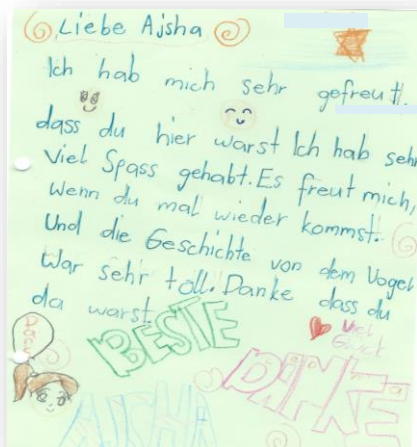 Liebe Aisha
Ich hab mich sehr gefreut.
dass du hier warst Ich hab sehr
Viel Spass gehabt. Es freut mich,
Wenn du mal wieder kommst.
Und die Geschichte von dem Vogel
War sehr toll. Danke dass du
da warst.
Viel
Glück
BESTE
DANKE
AISHA